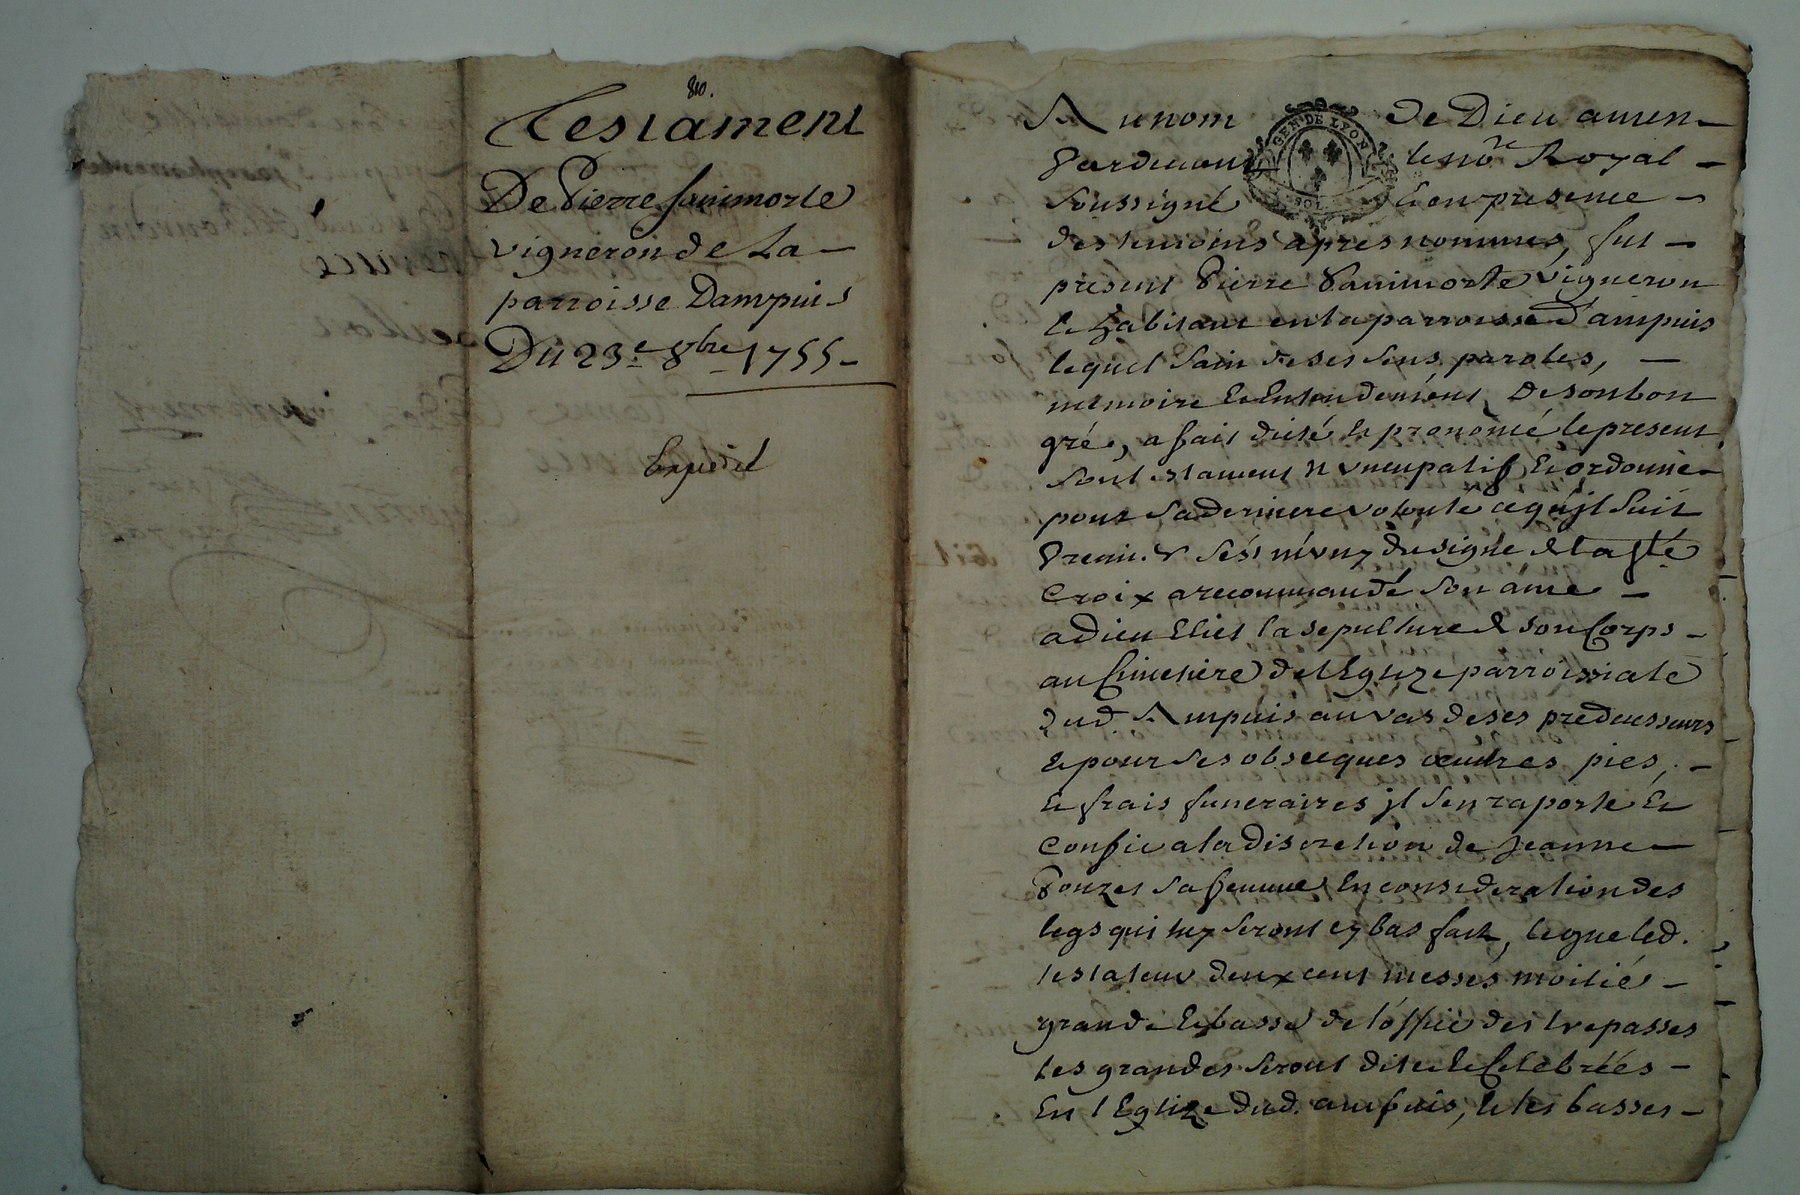 810.
Testament
De Pierre Sanimorte
vigneron de La
parroisse Dampuis
Du 23e 8bre 1755
Expedié
Au nom de Dieu amen
GEN. DE LYON
SOL
Pardevant le nore Royal
soussigné & en presence
des temoins apres nommes, fut
present Pierre Sanimorte vigneron
& habitant en la parroisse d'ampuis
lequel sain de ses sens, paroles,
memoire & Entendement, De son bon
gré, a fait dicté & prononcé le present
son testament nuncupatif & ordonné
pour sa derniere volonté ce qu'jl suit
Premier s'est muny du signe de la ste
Croix a recommandé son ame
a dieu Eliet la sepulture de son Corps
au Cimetiere de l'Eglize parroissiale
dud. Ampuis au vas de ses predecesseurs
& pour ses obseques œuvres pies,
& frais funeraires jl s'en raporte &
Confie a la discretion de Jeanne
Pouzet sa femme En consideration des
legs qui luy seront cy bas fait, legue led.
testateur deux cent messes moitié
grande & basse de l'office des trepasses
les grandes seront dite & Celebréés
En l'Eglize dud. ampuis, & les basses